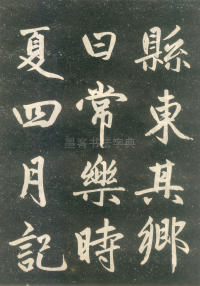 縣東其鄉
曰常樂時
夏四月記
墨客书法字典